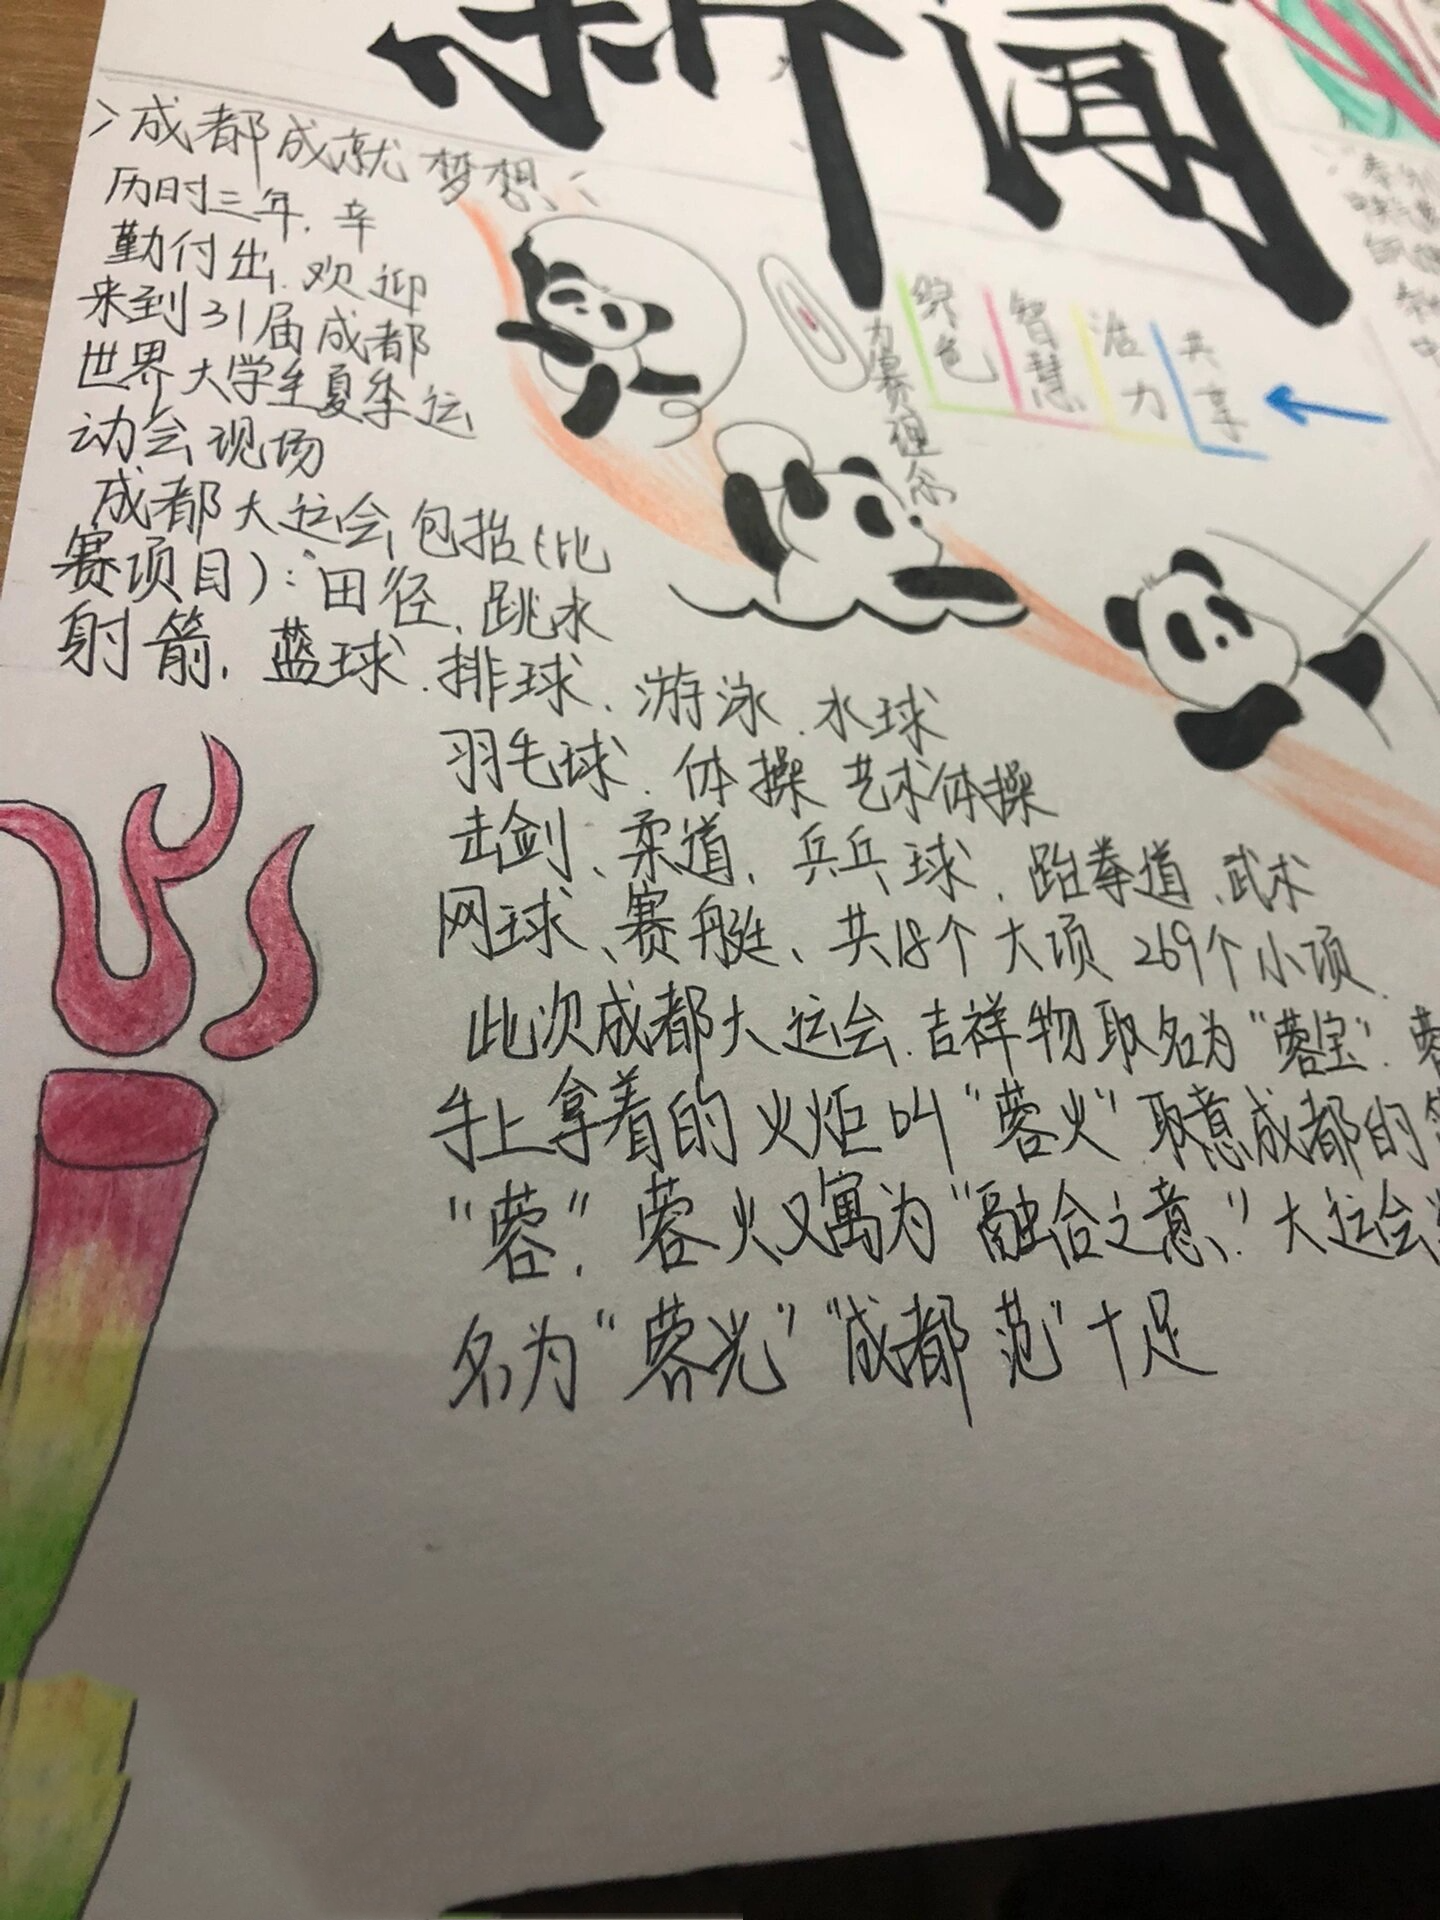 新闻
>成都成就梦想<
历时三年、辛
勤付出、欢迎
来到31届成都
世界大学生夏季运
动会现场
成都大运会包括(比
赛项目):田径、跳水
射箭、蓝球、排球、游泳、水球
羽毛球、体操 艺术体操
击剑、柔道、兵乒球、跆拳道、武术
网球、赛艇、共18个大项 269个小项
此次成都大运会、吉祥物取名为“蓉宝”、蓉
手上拿着的火炬叫“蓉火”取意成都的简
“蓉”、蓉火又寓为“融合之意”、大运会
名为“蓉光”“成都范”十足
办赛理念
绿色
智慧
活力
共享